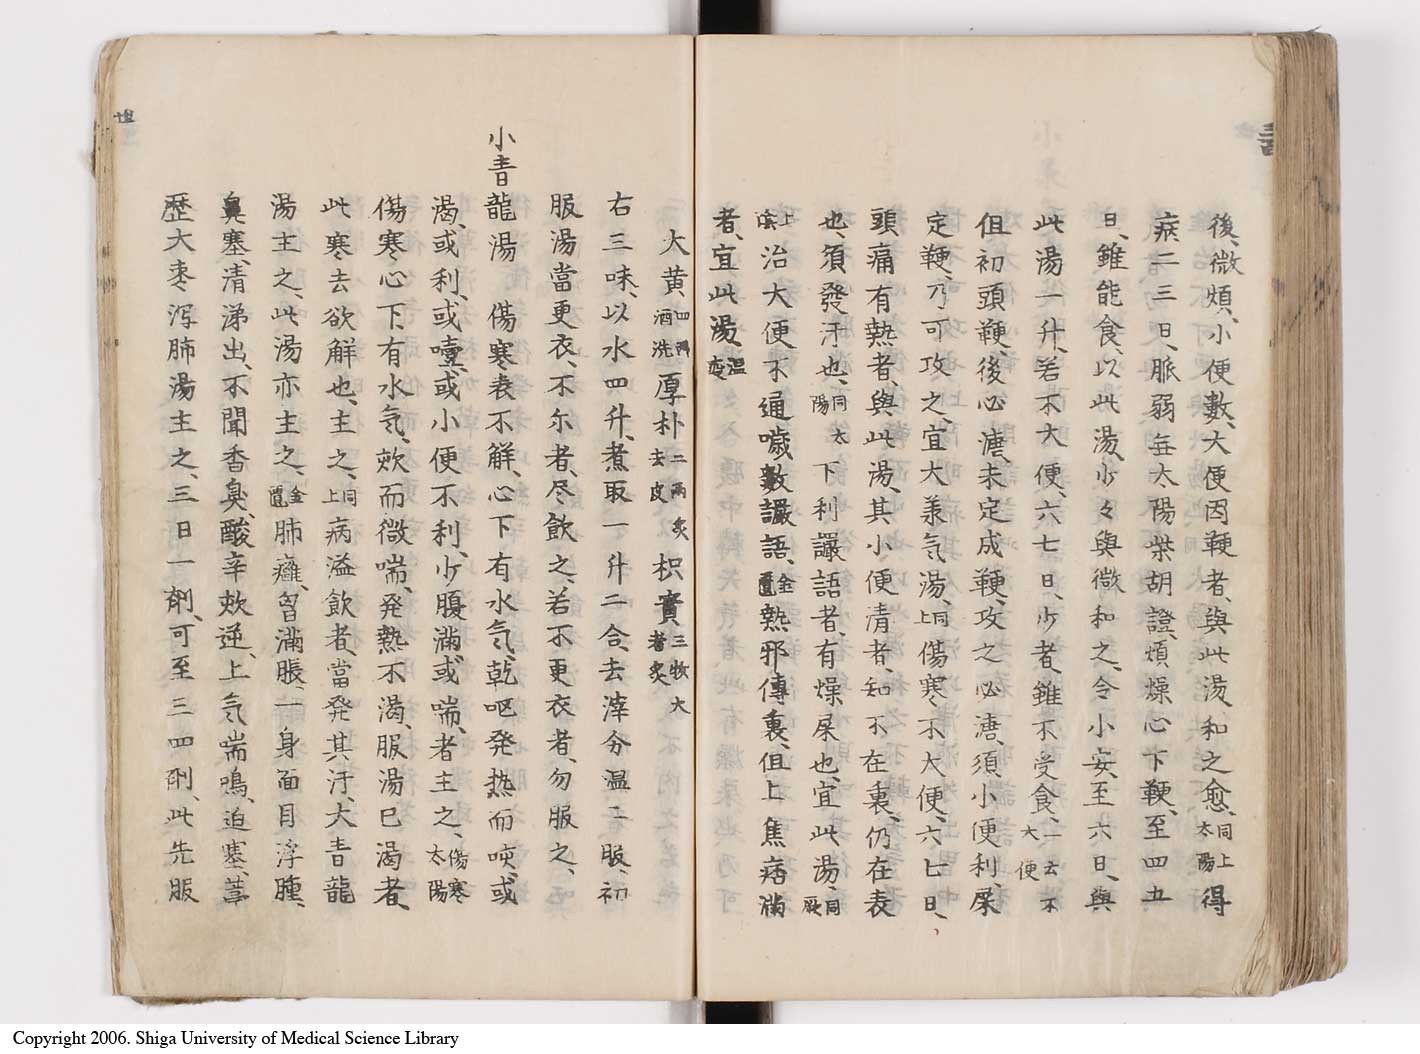 後、微煩、小便數、大便因鞕者、與此湯、和之愈、同上太陽得
病二三日、脈弱無太陽柴胡證、煩燥心下鞕、至四五
日、雖能食、以此湯、少々與微和之、令小安、至六日、與
此湯一升、若不大便、六七日、少者、雖不受食、一云不大便
但初頭鞕、後心溏、未定成鞕、攻之必溏、須小便利屎
定鞕、乃可攻之、宜大羕气湯、同上傷寒不大便、六七日、
頭痛有熱者、與此湯、其小便清者、知不在裏、仍在表
也、須發汗也、同太陽下利讝語者、有燥屎也、宜此湯、同厥
陰上治大便不通噦數讝語、金匱熱邪傳裏、但上焦痞滿
者、宜此湯、温疫
大黄四兩酒洗厚朴二兩炙去皮枳實三牧大者炙
右三味、以水四升、煮取一升二合、去滓分温二服、初
服湯當更衣、不尓者、尽飲之、若不更衣者、勿服之、
小青龍湯 傷寒表不解、心下有水气、乾呕発热而咳、或
渴、或利、或噎、或小便不利、少腹滿或喘、者主之、傷寒太陽
傷寒心下、有水气、欬而微喘、発熱不渴、服湯已渴者、
此寒去欲解也、主之、同上病溢飲者、當発其汗、大青龍
湯主之、此湯亦主之、金匱肺癰、胷滿脹、一身面目浮腫、
鼻塞、清涕出、不聞香臭、酸辛欬逆、上气喘鳴、迫塞、葶
歴大枣泻肺湯主之、三日一劑、可至三四劑、此先服
Copyright 2006. Shiga University of Medical Science Library